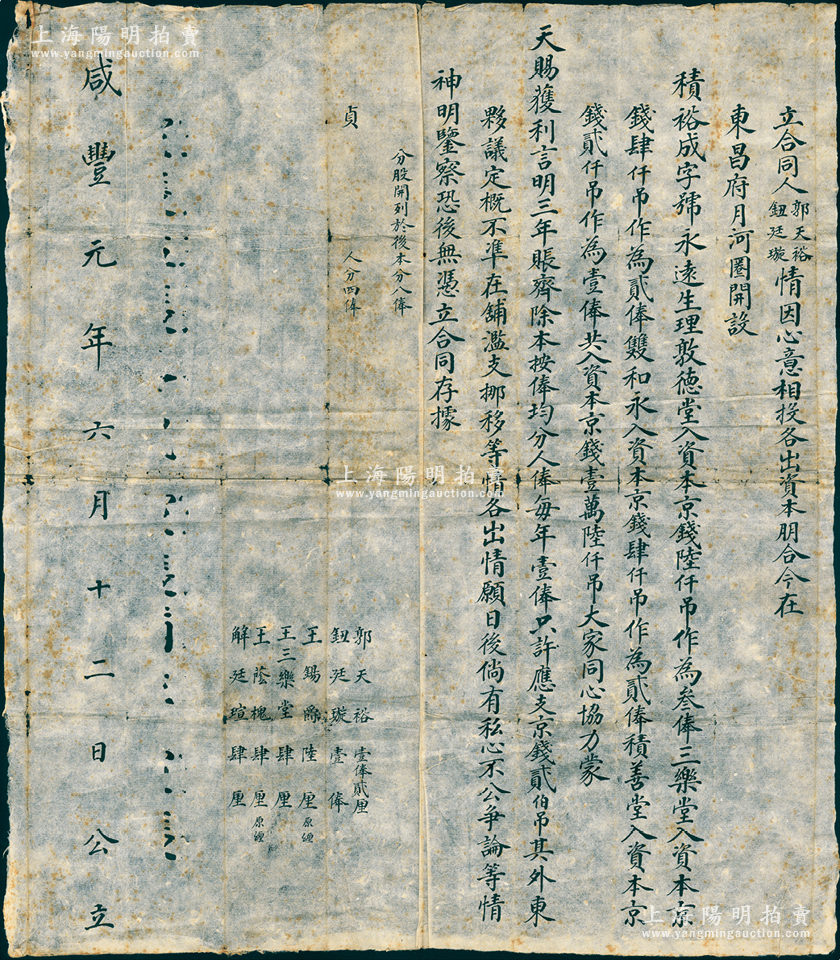 立合同人郭天裕鈕廷璇情因心意相投各出資本朋合今在
東昌府月河圈開設
積裕成字號永遠生理敦德堂入資本京錢陸仟吊作為叁俸三樂堂入資本京
錢肆仟吊作為貳俸雙和永入資本京錢肆仟吊作為貳俸積善堂入資本京
錢貳仟吊作為壹俸共入資本京錢壹萬陸仟吊大家同心協力蒙
天賜獲利言明三年賬齊除本按俸均分人俸每年壹俸只許應支京錢貳伯吊其外東
夥議定概不準在鋪濫支挪移等情各出情願日後倘有私心不公爭論等情
神明鑒察恐後無憑立合同存據
分股開列於後本分八俸
人分四俸
貞
郭天裕壹俸貳厘
鈕廷璇壹俸
王錫爵陸厘
王三樂堂肆厘
王蔭槐肆厘
解廷瑄肆厘
咸豐元年六月十二日公立
上海陽明拍賣
www.yangmingauction.com
上海陽明拍賣
www.yangmingauction.com
上海陽明拍賣
www.yangmingauction.com